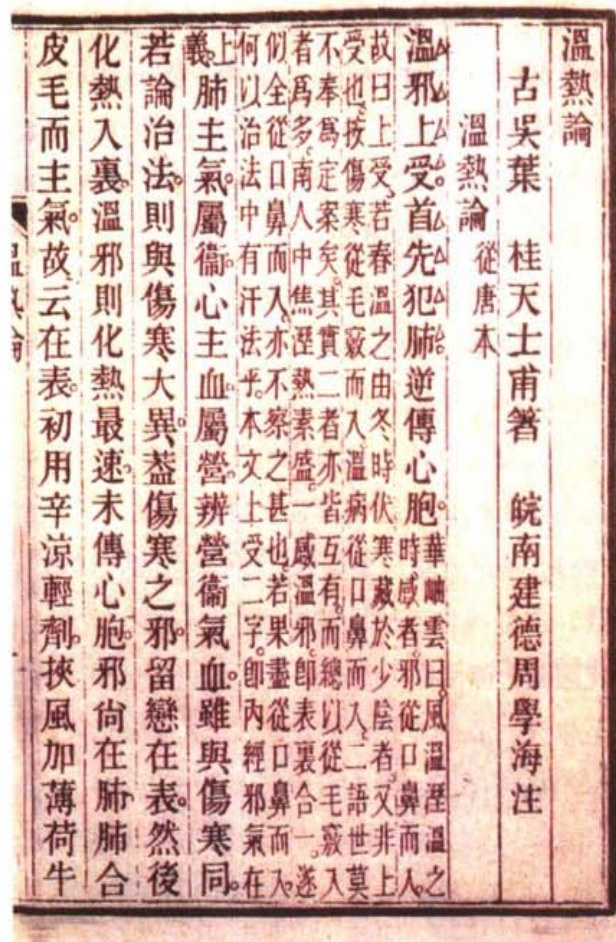 溫熱論
古吳葉　桂天士甫箸　皖南建德周學海注
溫熱論　從唐本
溫邪上受。首先犯肺。逆傳心胞。華岫雲曰。風溫溼溫之時感者。邪從口鼻而入。
故曰上受。若春溫之由冬時伏寒藏於少陰者。又非上
受也。按傷寒從毛竅而入溫病從口鼻而入。二語世莫
不奉爲定案矣。其實二者亦皆互有。而總以從毛竅入
者爲多。南人中焦溼熱素盛。一感溫邪。卽表裏合一。遂
似全從口鼻而入。亦不察之甚也。若果盡從口鼻而入。
何以治法中有汗法乎。本文上受二字。卽內經邪氣在
上義。肺主氣。屬衞。心主血。屬營。辨營衞氣血。雖與傷寒同。
若論治法。則與傷寒大異。葢傷寒之邪。留戀在表。然後
化熱入裏。溫邪則化熱最速。未傳心胞。邪尙在肺。肺合
皮毛而主氣。故云在表。初用辛涼輕劑。挾風加薄荷牛